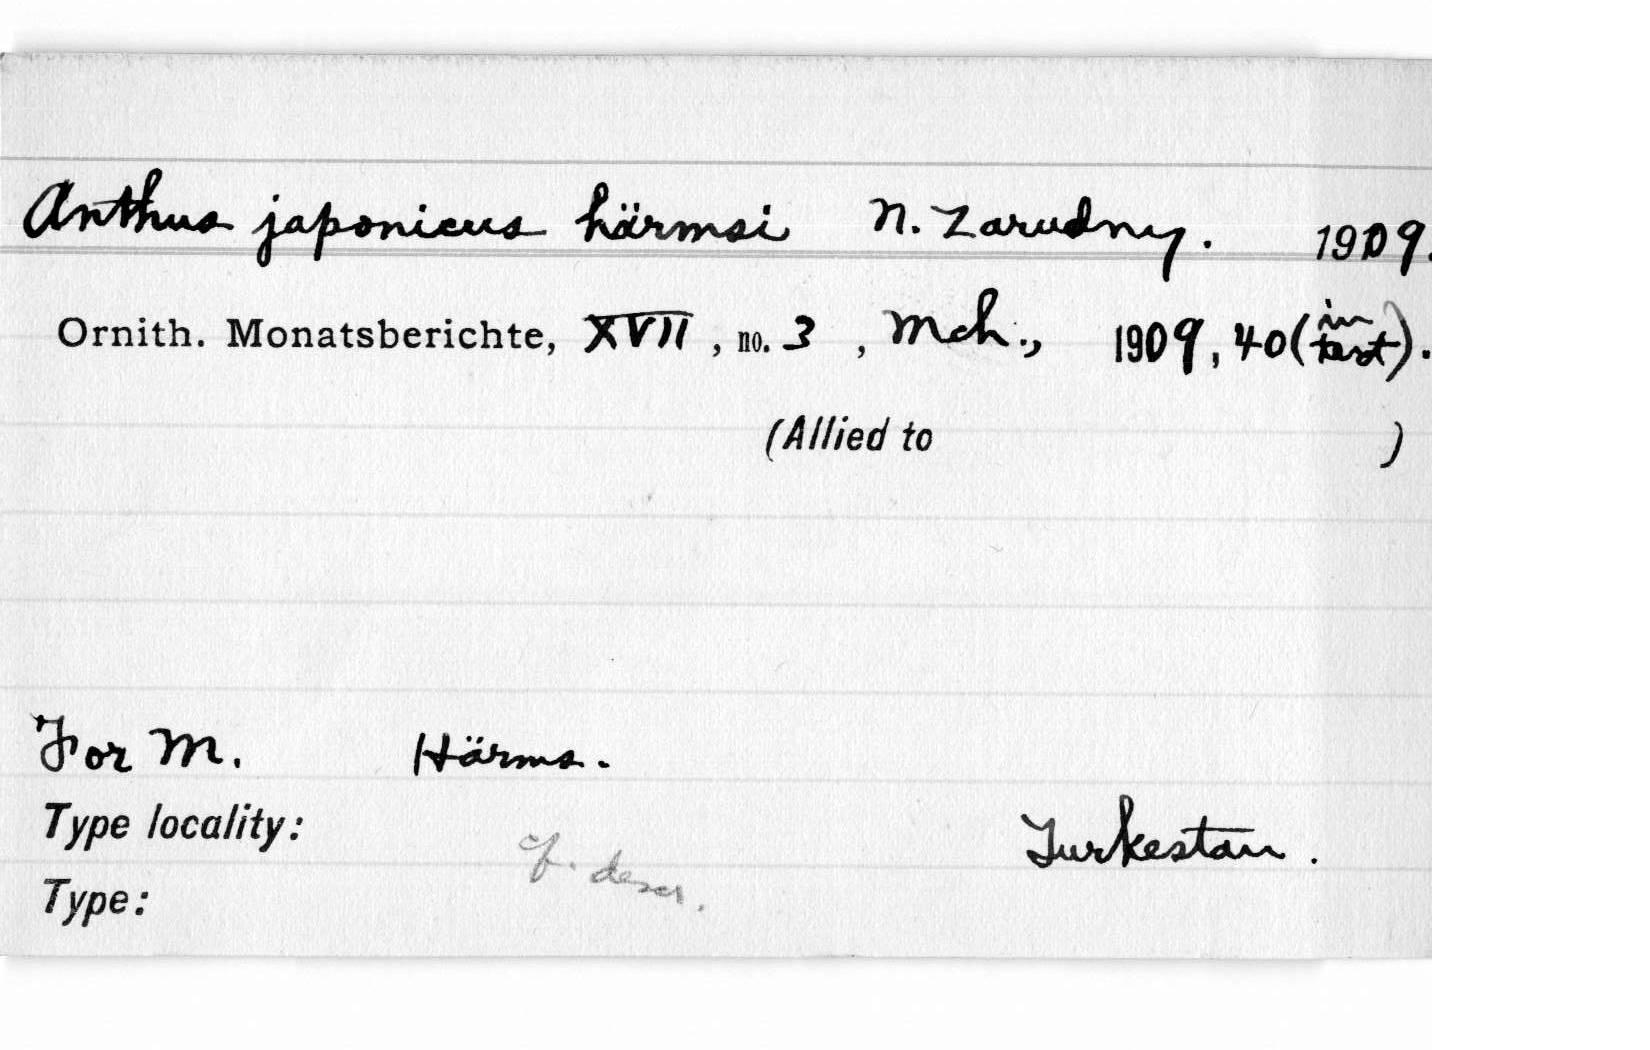 Anthus japonicus härmsi N. Zarudny. 1909.
Ornith. Monatsberichte, XVII, no. 3, Mch., 1909, 40 (in text).
(Allied to )
For M. Härms.
Type locality: Turkestan.
cf. descr.
Type: